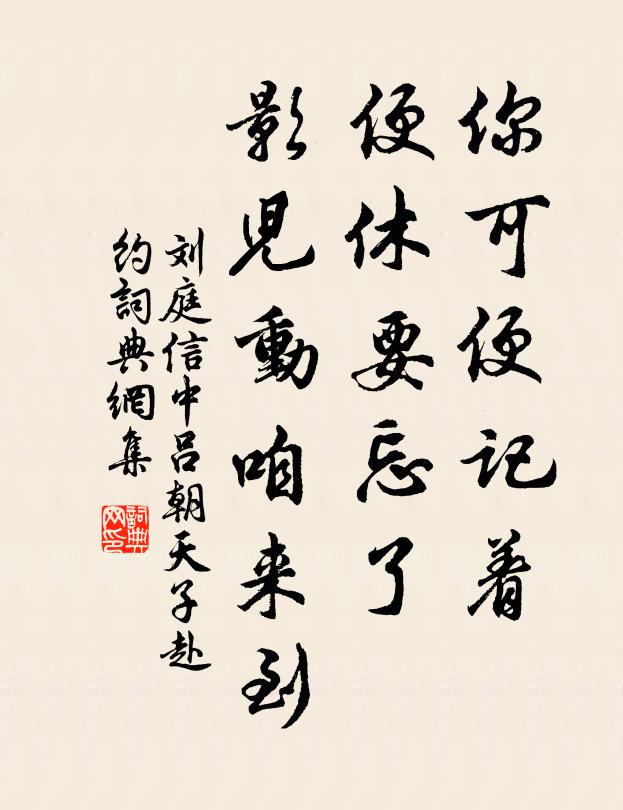 你可便记着
便休要忘了
影児動咱来到
刘庭信中吕朝天子赴
约詞典網集
詞典
网印